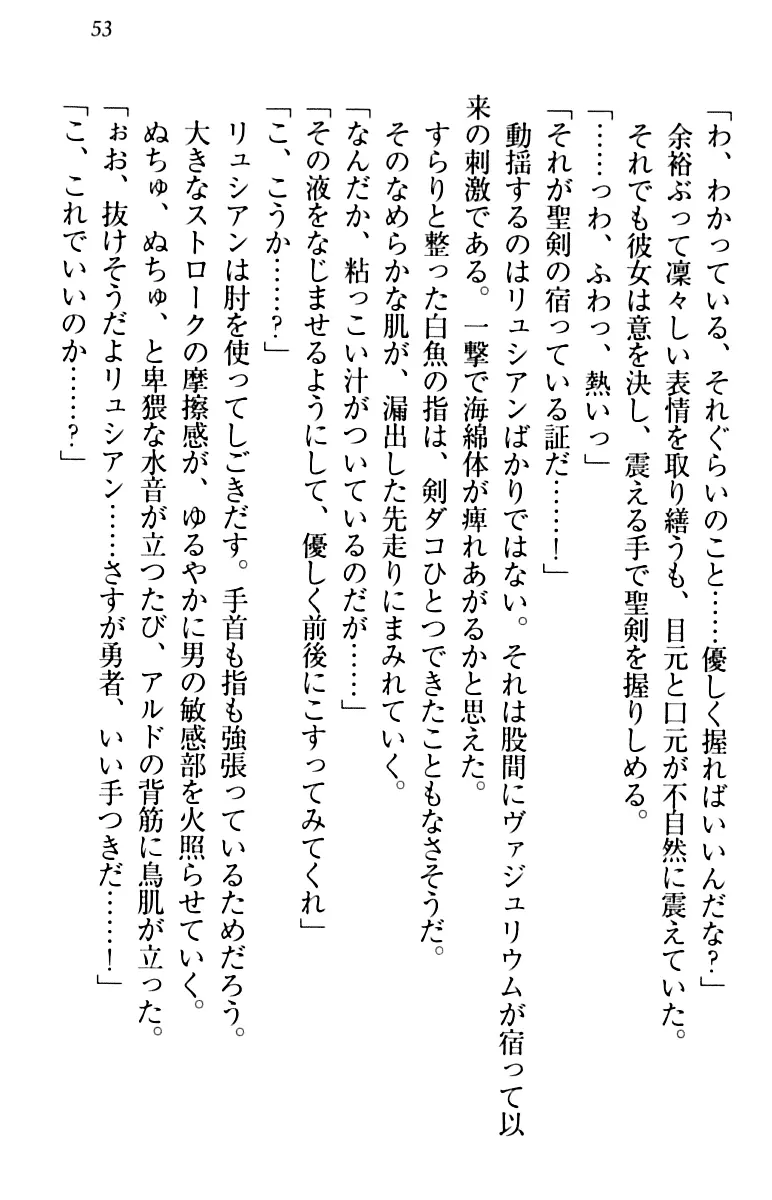 53
「わ、わかっている、それぐらいのこと……優しく握ればいいんだな？」
余裕ぶって凜々しい表情を取り繕うも、目元と口元が不自然に震えていた。
それでも彼女は意を決し、震える手で聖剣を握りしめる。
「……っわ、ふわっ、熱いっ」
「それが聖剣の宿っている証だ……！」
動揺するのはリュシアンばかりではない。それは股間にヴァジュリウムが宿って以
来の刺激である。一撃で海綿体が痺れあがるかと思えた。
すらりと整った白魚の指は、剣ダコひとつできたこともなさそうだ。
そのなめらかな肌が、漏出した先走りにまみれていく。
「なんだか、粘っこい汁がついているのだが……」
「その液をなじませるようにして、優しく前後にこすってみてくれ」
「こ、こうか……？」
リュシアンは肘を使ってしごきだす。手首も指も強張っているためだろう。
大きなストロークの摩擦感が、ゆるやかに男の敏感部を火照らせていく。
ぬちゅ、ぬちゅ、と卑猥な水音が立つたび、アルドの背筋に鳥肌が立った。
「ぉお、抜けそうだよリュシアン……さすが勇者、いい手つきだ……！」
「こ、これでいいのか……？」